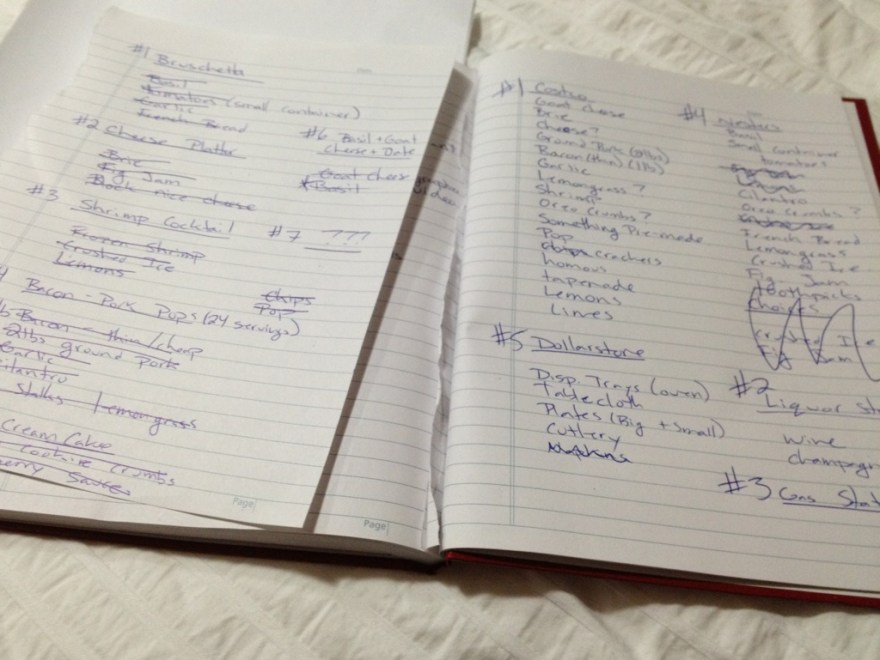 #1 Bruschetta
Basil
tomatoes (small container)
Garlic
French Bread
#2 Cheese Platter
Brie
Fig Jam
Block nice cheese
#6 Basil + Goat
cheese + Date
Goat cheese
Basil
#3 Shrimp Cocktail
Frozen Shrimp
Crushed Ice
Lemons
#7 ???
Chips
Pop
Bacon-Pork Pops (24 servings)
Bacon - thin/cheap
2lbs ground Pork
Garlic
Cilantro
Stalks Lemongrass
Cream Cake
crumbs
Page
Page
#1 Costco
Goat cheese
Brie
Cheese?
Ground Pork (2lbs)
Bacon (thin) (1lb)
Garlic
Lemongrass?
Shrimp
Oreo Crumbs?
Something Pre-made
Pop
crackers
homous
tapenade
Lemons
Limes
#5 Dollarstore
Disp. Trays (oven)
Tablecloth
Plates (Big + Small)
Cutlery
Napkins
#4
Basil
Small container
tomatoes
Cilantro
Oreo Crumbs?
French Bread
Lemongrass
Crushed Ice
Fig Jam
toothpicks
Crushed Ice
Fig Jam
#2
Liquor
wine
champagn
#3 Gas Stat